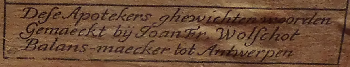 Dese Apotekers ghewichten woorden
Gemaeckt bij Joan Fr. Wolschot
Balans-maecker tot Antwerpen